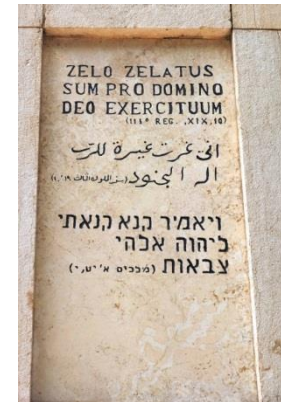 ZELO ZELATUS
SUM PRO DOMINO
DEO EXERCITUUM
(IIIº REG. ,XIX,10)
اني غرت غيرة للرب
اله الجنود (سفر الملوك الثالث ١٩،١٠)
ויאמיר קנא קנאתי
ליהוה אלהי
צבאות (מלכים א'יט,י)